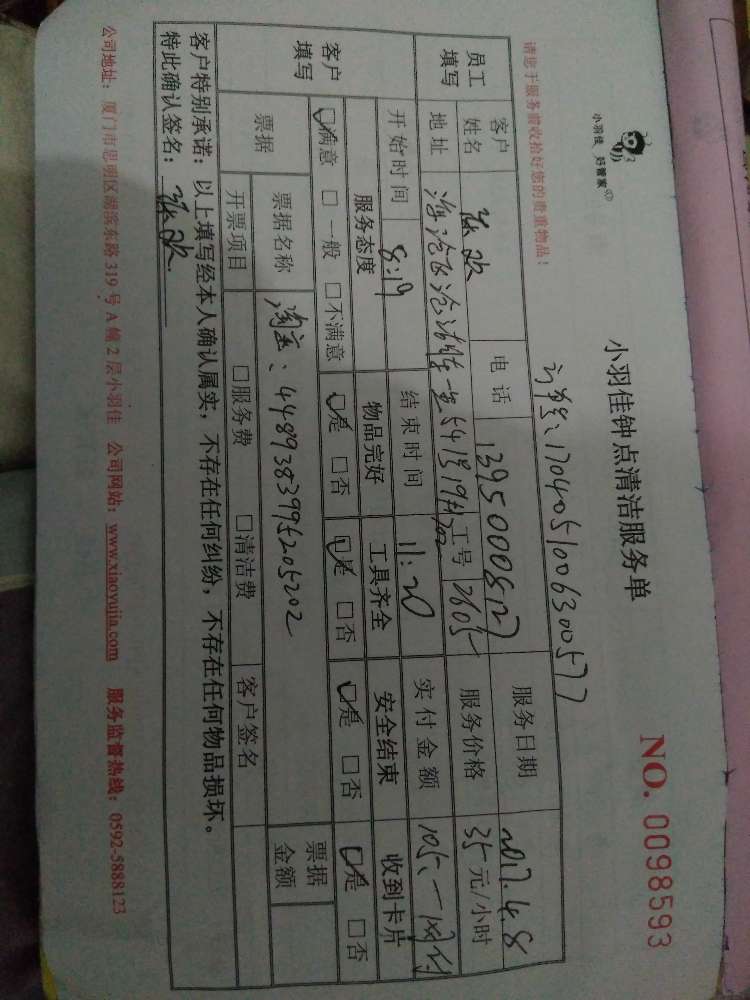 小羽佳 好管家
小羽佳钟点清洁服务单
NO. 0098593
请您于服务前收拾好您的贵重物品！
订单号:1704051006300577
员工填写
客户姓名
电话
13950008127
服务日期
2017.4.8
地址
工号
2605
服务价格
35元/小时
开始时间
8:19
结束时间
11:20
实付金额
105.一网付
客户填写
服务态度
物品完好
工具齐全
安全结束
收到卡片
满意 一般 不满意
是 否
是 否
是 否
是 否
票据
票据名称
淘宝:4489383995205202
票据金额
开票项目
服务费
清洁费
客户签名
客户特别承诺：以上填写经本人确认属实，不存在任何纠纷，不存在任何物品损坏。
特此确认签名：
公司地址：厦门市思明区湖滨东路319号A幢2层小羽佳 公司网站：www.xiaoyujia.com 服务监督热线：0592-5888123